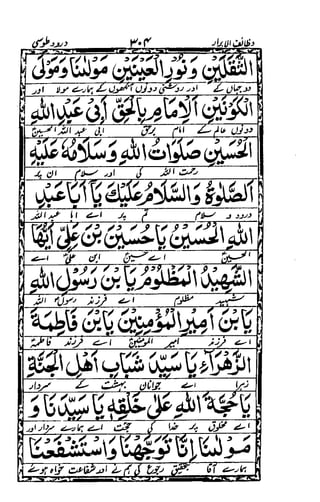 وظائف الابرار ۳۰۴ درود طوسی
الثَّقَلَيْنِ وَنُوْرِ الْعَيْنَيْنِ مَوْلٰىنَا وَمَوْلَى
دو جہاں کے اور روشنی دونوں آنکھوں کے ہمارے مولا اور
الْكَوْنَيْنِ الْاِمَامِ بِالْحَقِّ اَبِىْ عَبْدِ اللهِ
دونوں عالم کے امام برحق ابی عبد اللہ الحسین
الْحُسَيْنِ صَلَوَاتُ اللهِ وَسَلَامُهٗ عَلَيْهِ
رحمت اللہ کی اور سلام ان پر
اَلصَّلٰوةُ وَالسَّلَامُ عَلَيْكَ يَا اَبَا عَبْدِ
درود و سلام تم پر اے ابا عبد اللہ
اللهِ الْحُسَيْنُ يَا حُسَيْنَ بْنَ عَلِىٍّ اَيُّهَا
الحسین اے حسین ابن علی اے
الشَّهِيْدُ الْمَظْلُوْمُ يَا بْنَ رَسُوْلِ اللهِ
شہید مظلوم اے فرزند رسول اللہ
يَا بْنَ اَمِيْرِ الْمُؤْمِنِيْنَ يَا بْنَ فَاطِمَةَ
اے فرزند امیر المومنین اے فرزند فاطمہ
الزَّهْرَاءِ يَا سَيِّدَ شَبَابِ اَهْلِ الْجَنَّةِ
زہرا اے جوانان بہشت کے سردار
يَا حُجَّةَ اللهِ عَلٰى خَلْقِهٖ يَا سَيِّدَنَا وَ
اے مخلوق پر خدا کی حجت اے ہمارے سردار اور
مَوْلٰىنَا اِنَّا تَوَجَّهْنَا وَاسْتَشْفَعْنَا
ہمارے آقا بتحقیق رجوع کی ہم نے اور شفاعت خواہ ہوئے